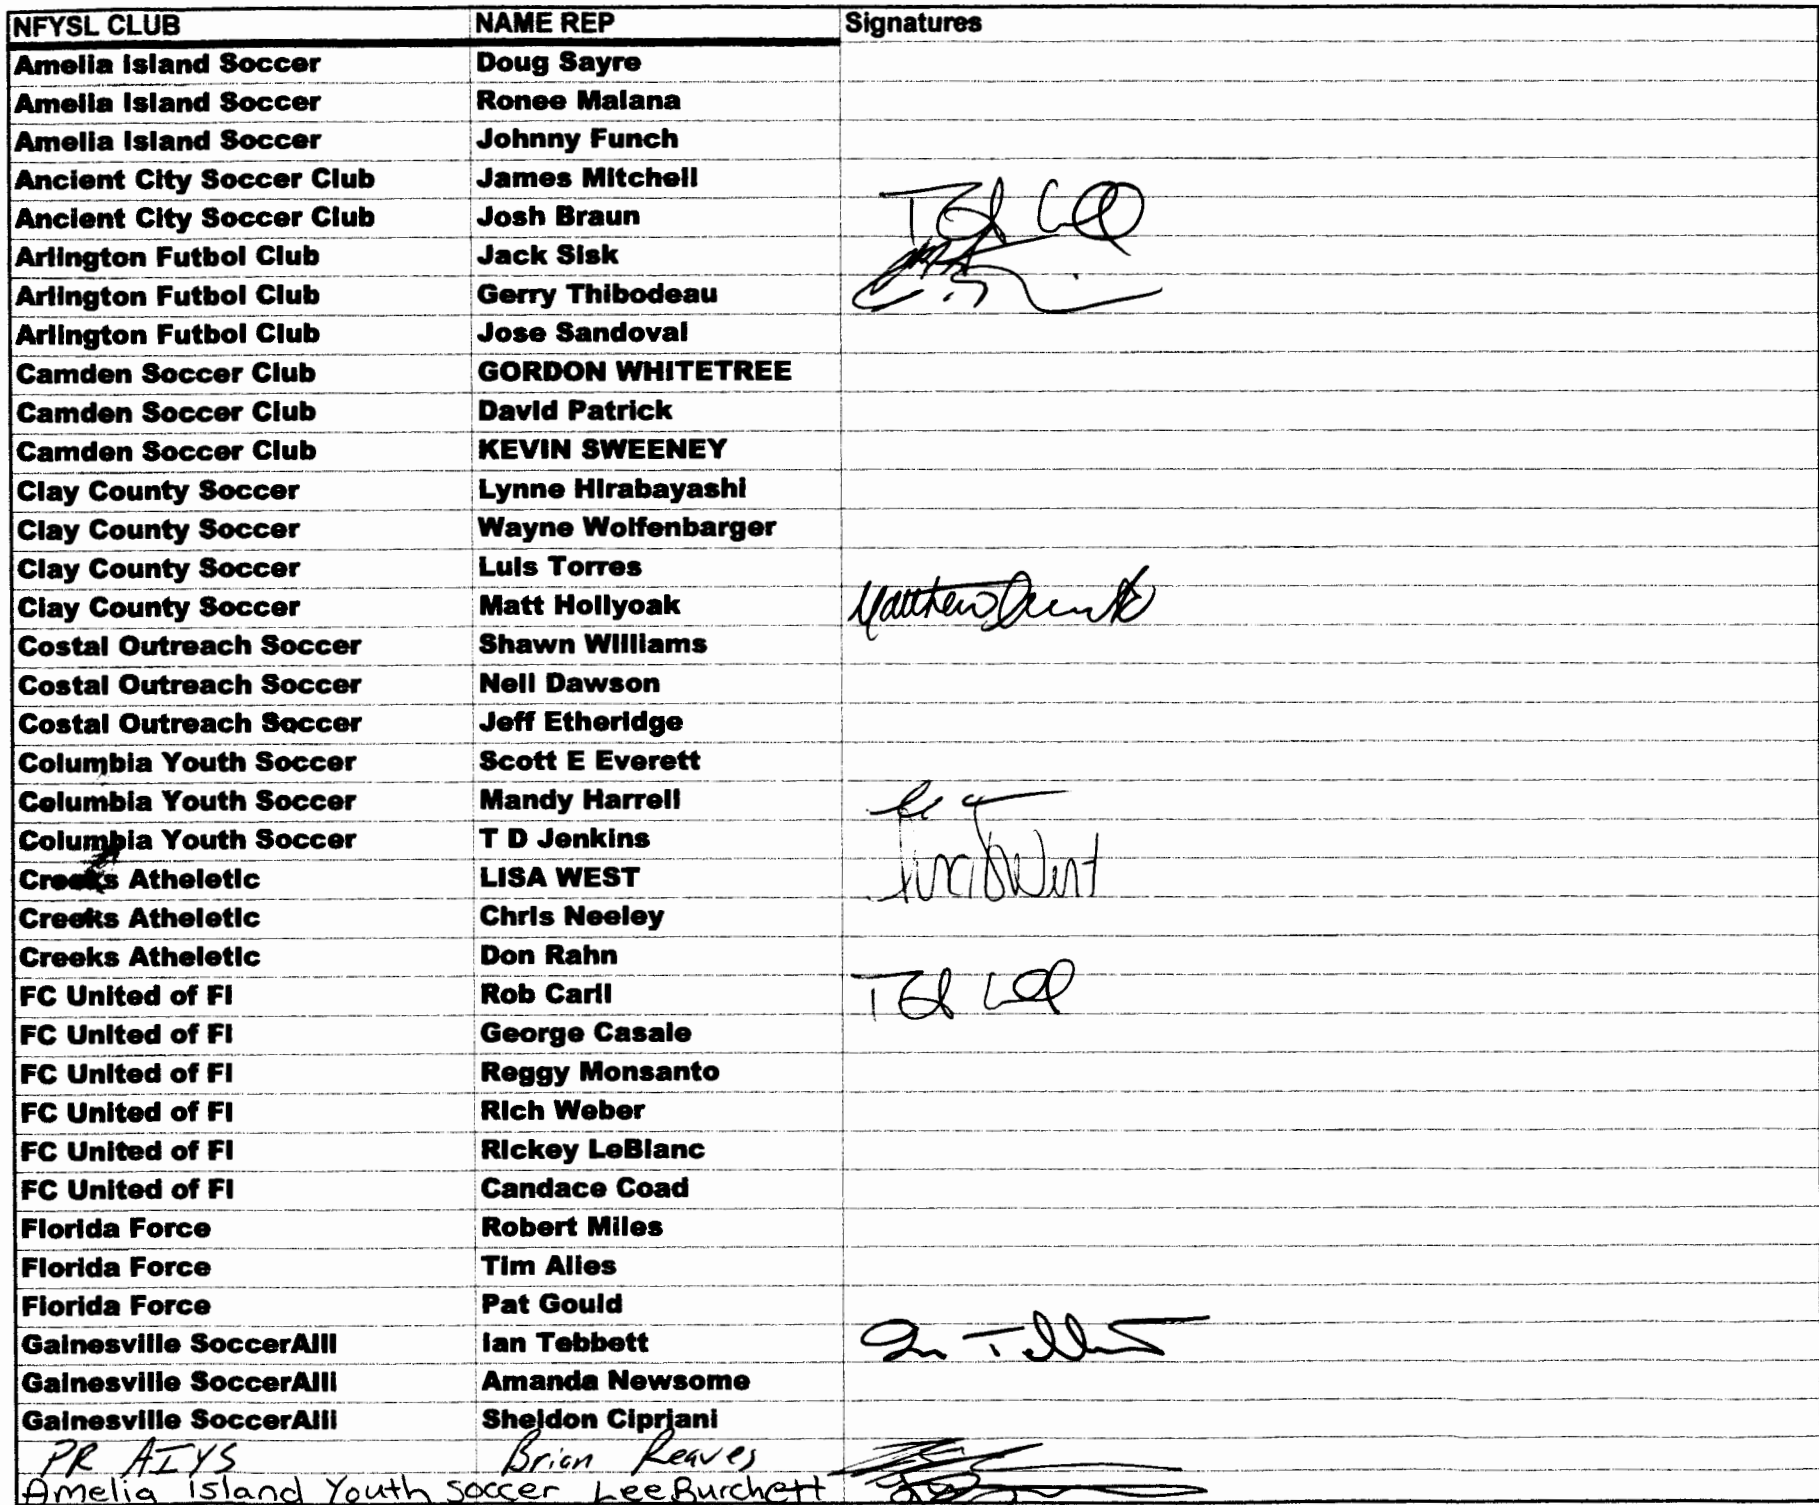 NFYSL CLUB NAME REP Signatures
Amelia Island Soccer Doug Sayre
Amelia Island Soccer Ronee Malana
Amelia Island Soccer Johnny Funch
Ancient City Soccer Club James Mitchell
Ancient City Soccer Club Josh Braun
Arlington Futbol Club Jack Sisk
Arlington Futbol Club Gerry Thibodeau
Arlington Futbol Club Jose Sandoval
Camden Soccer Club GORDON WHITETREE
Camden Soccer Club David Patrick
Camden Soccer Club KEVIN SWEENEY
Clay County Soccer Lynne Hirabayashi
Clay County Soccer Wayne Wolfenbarger
Clay County Soccer Luis Torres
Clay County Soccer Matt Hollyoak Matthew
Costal Outreach Soccer Shawn Williams
Costal Outreach Soccer Neil Dawson
Costal Outreach Soccer Jeff Etheridge
Columbia Youth Soccer Scott E Everett
Columbia Youth Soccer Mandy Harrell
Columbia Youth Soccer T D Jenkins
Creeks Atheletic LISA WEST West
Creeks Atheletic Chris Neeley
Creeks Atheletic Don Rahn
FC United of Fl Rob Carll
FC United of Fl George Casale
FC United of Fl Reggy Monsanto
FC United of Fl Rich Weber
FC United of Fl Rickey LeBlanc
FC United of Fl Candace Coad
Florida Force Robert Miles
Florida Force Tim Alles
Florida Force Pat Gould
Gainesville SoccerAlli Ian Tebbett Ian Tebbett
Gainesville SoccerAlli Amanda Newsome
Gainesville SoccerAlli Sheldon Cipriani
PR AIYS Brian Reaves
Amelia Island Youth Soccer Lee Burchett